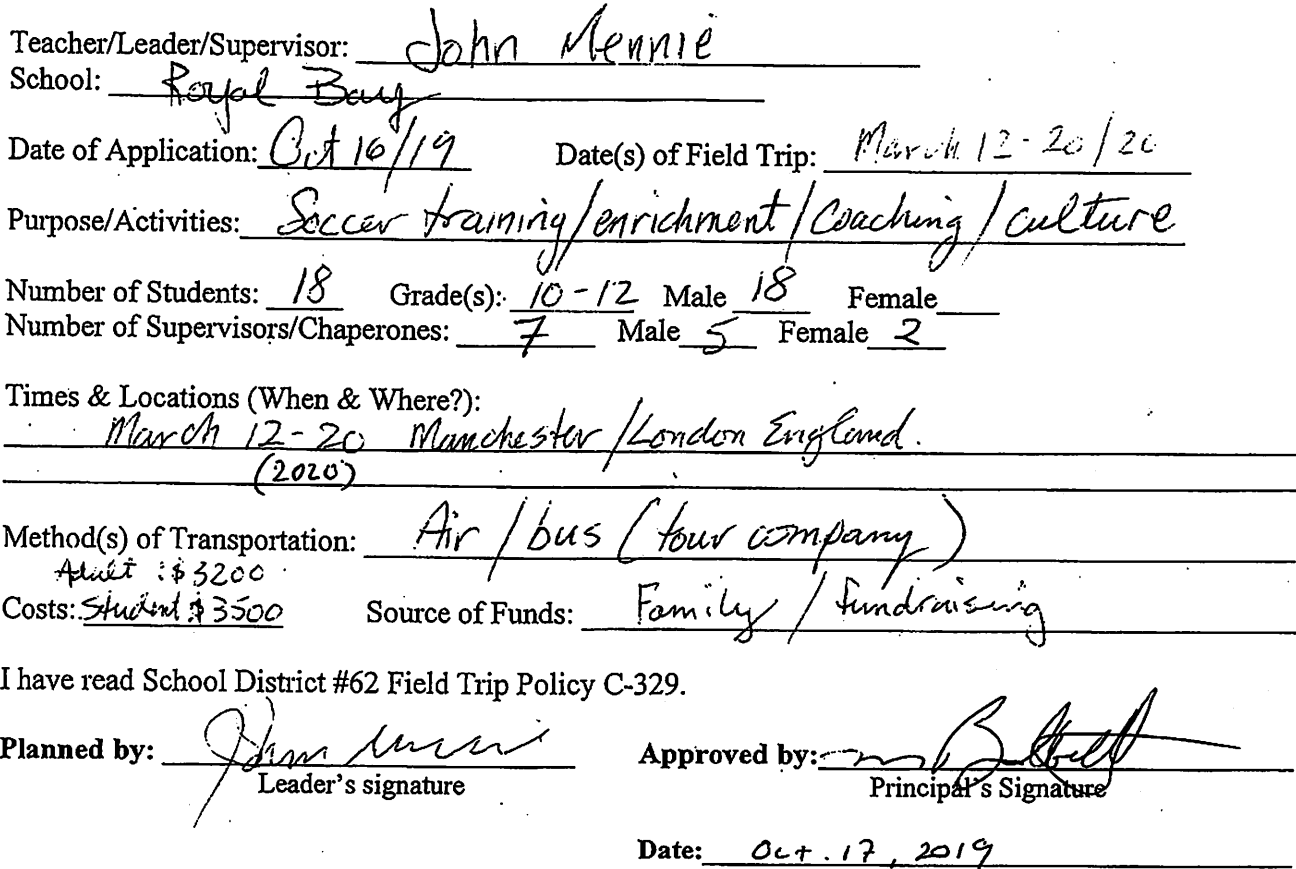 Teacher/Leader/Supervisor: John Mennie
School: Royal Bay
Date of Application: Oct 16/19 Date(s) of Field Trip: March 12-20/20
Purpose/Activities: Soccer training/enrichment/Coaching/culture
Number of Students: 18 Grade(s): 10-12 Male 18 Female
Number of Supervisors/Chaperones: 7 Male 5 Female 2
Times & Locations (When & Where?):
March 12-20 Manchester/London England.
(2020)
Method(s) of Transportation: Air/bus (tour company)
Adult : $3200
Costs: Student $3500 Source of Funds: Family/fundraising
I have read School District #62 Field Trip Policy C-329.
Planned by: Approved by:
Leader's signature Principal's Signature
Date: Oct. 17, 2019